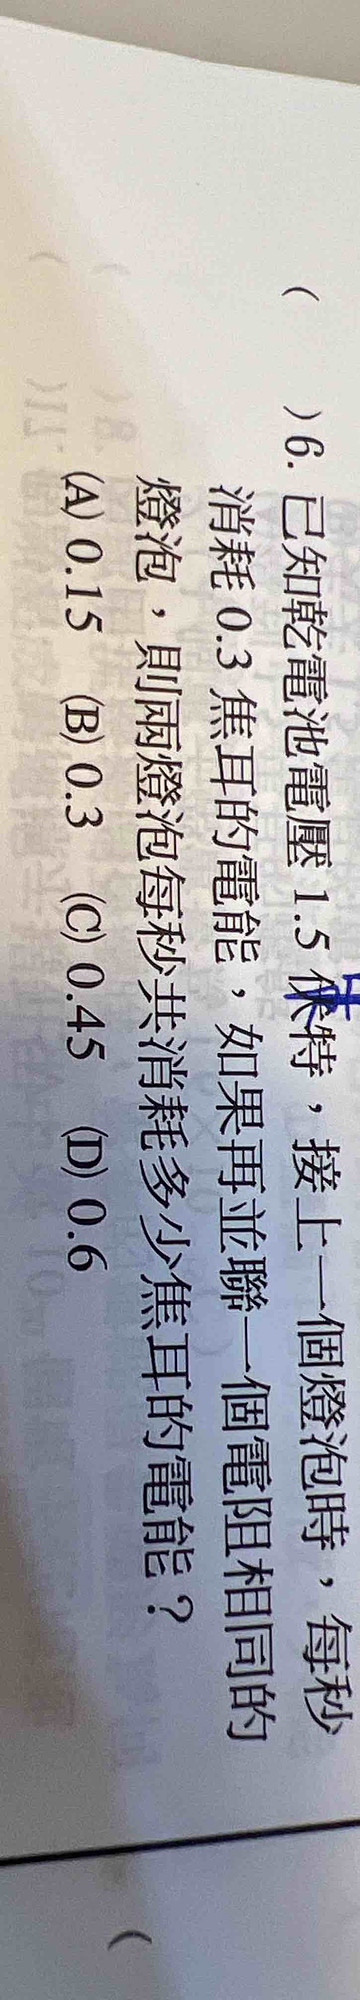 ( )6. 已知乾電池電壓 1.5 伏特，接上一個燈泡時，每秒
消耗 0.3 焦耳的電能，如果再並聯一個電阻相同的
燈泡，則兩燈泡每秒共消耗多少焦耳的電能？
(A) 0.15 (B) 0.3 (C) 0.45 (D) 0.6